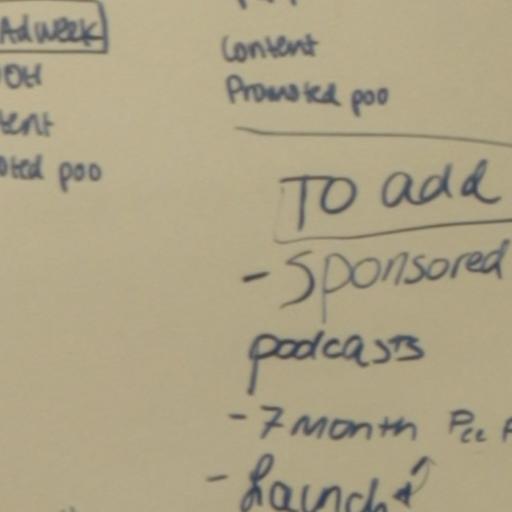 Adweek
OOH
tent
oted poo
Content
Promoted poo
TO add
- Sponsored
podcasts
- 7 month
- Launch